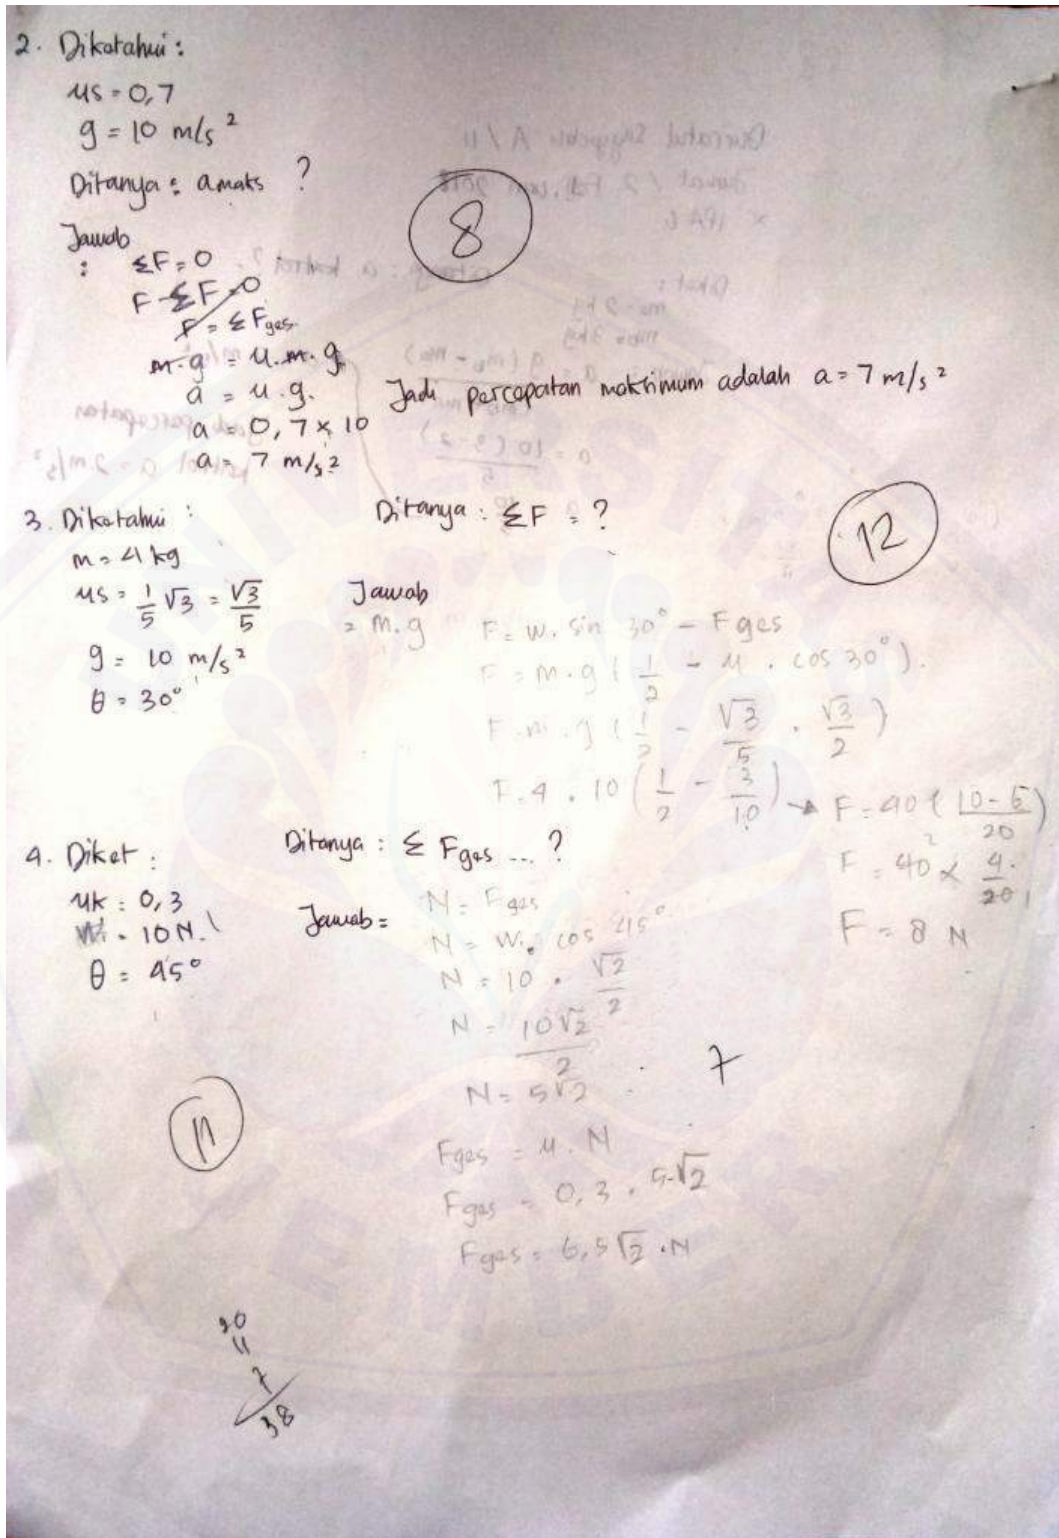 2. Diketahui :
μs = 0,7
g = 10 m/s²
Ditanya : amaks ?
Jawab
:
ΣF = 0
F - ΣF = 0
F = ΣFges
m.g = μ.m.g
a = μ.g.
a = 0,7 × 10
a = 7 m/s²
Jadi percepatan maksimum adalah a = 7 m/s²
8
3. Diketahui :
m = 4 kg
μs = 1/5 √3 = √3/5
g = 10 m/s²
θ = 30°
Ditanya : ΣF = ?
12
Jawab
= m.g
F = W. sin 30° - Fges
F = m.g (1/2 - μ . cos 30°).
F = m.g (1/2 - √3/5 . √3/2)
F = 4 . 10 (1/2 - 3/10) → F = 40 (10-6/20)
F = 40 × 4/20
F = 8 N
4. Diket :
μk = 0,3
W = 10 N.
θ = 45°
Ditanya : Σ Fges ... ?
Jawab =
N = Fges
N = W. cos 45°
N = 10 . √2/2
N = 10√2/2
N = 5√2
Fges = μ . N
Fges = 0,3 . 5√2
Fges = 6,5√2 . N
7
11
20
11
7
38
UNIVERSITAS
JEMBER